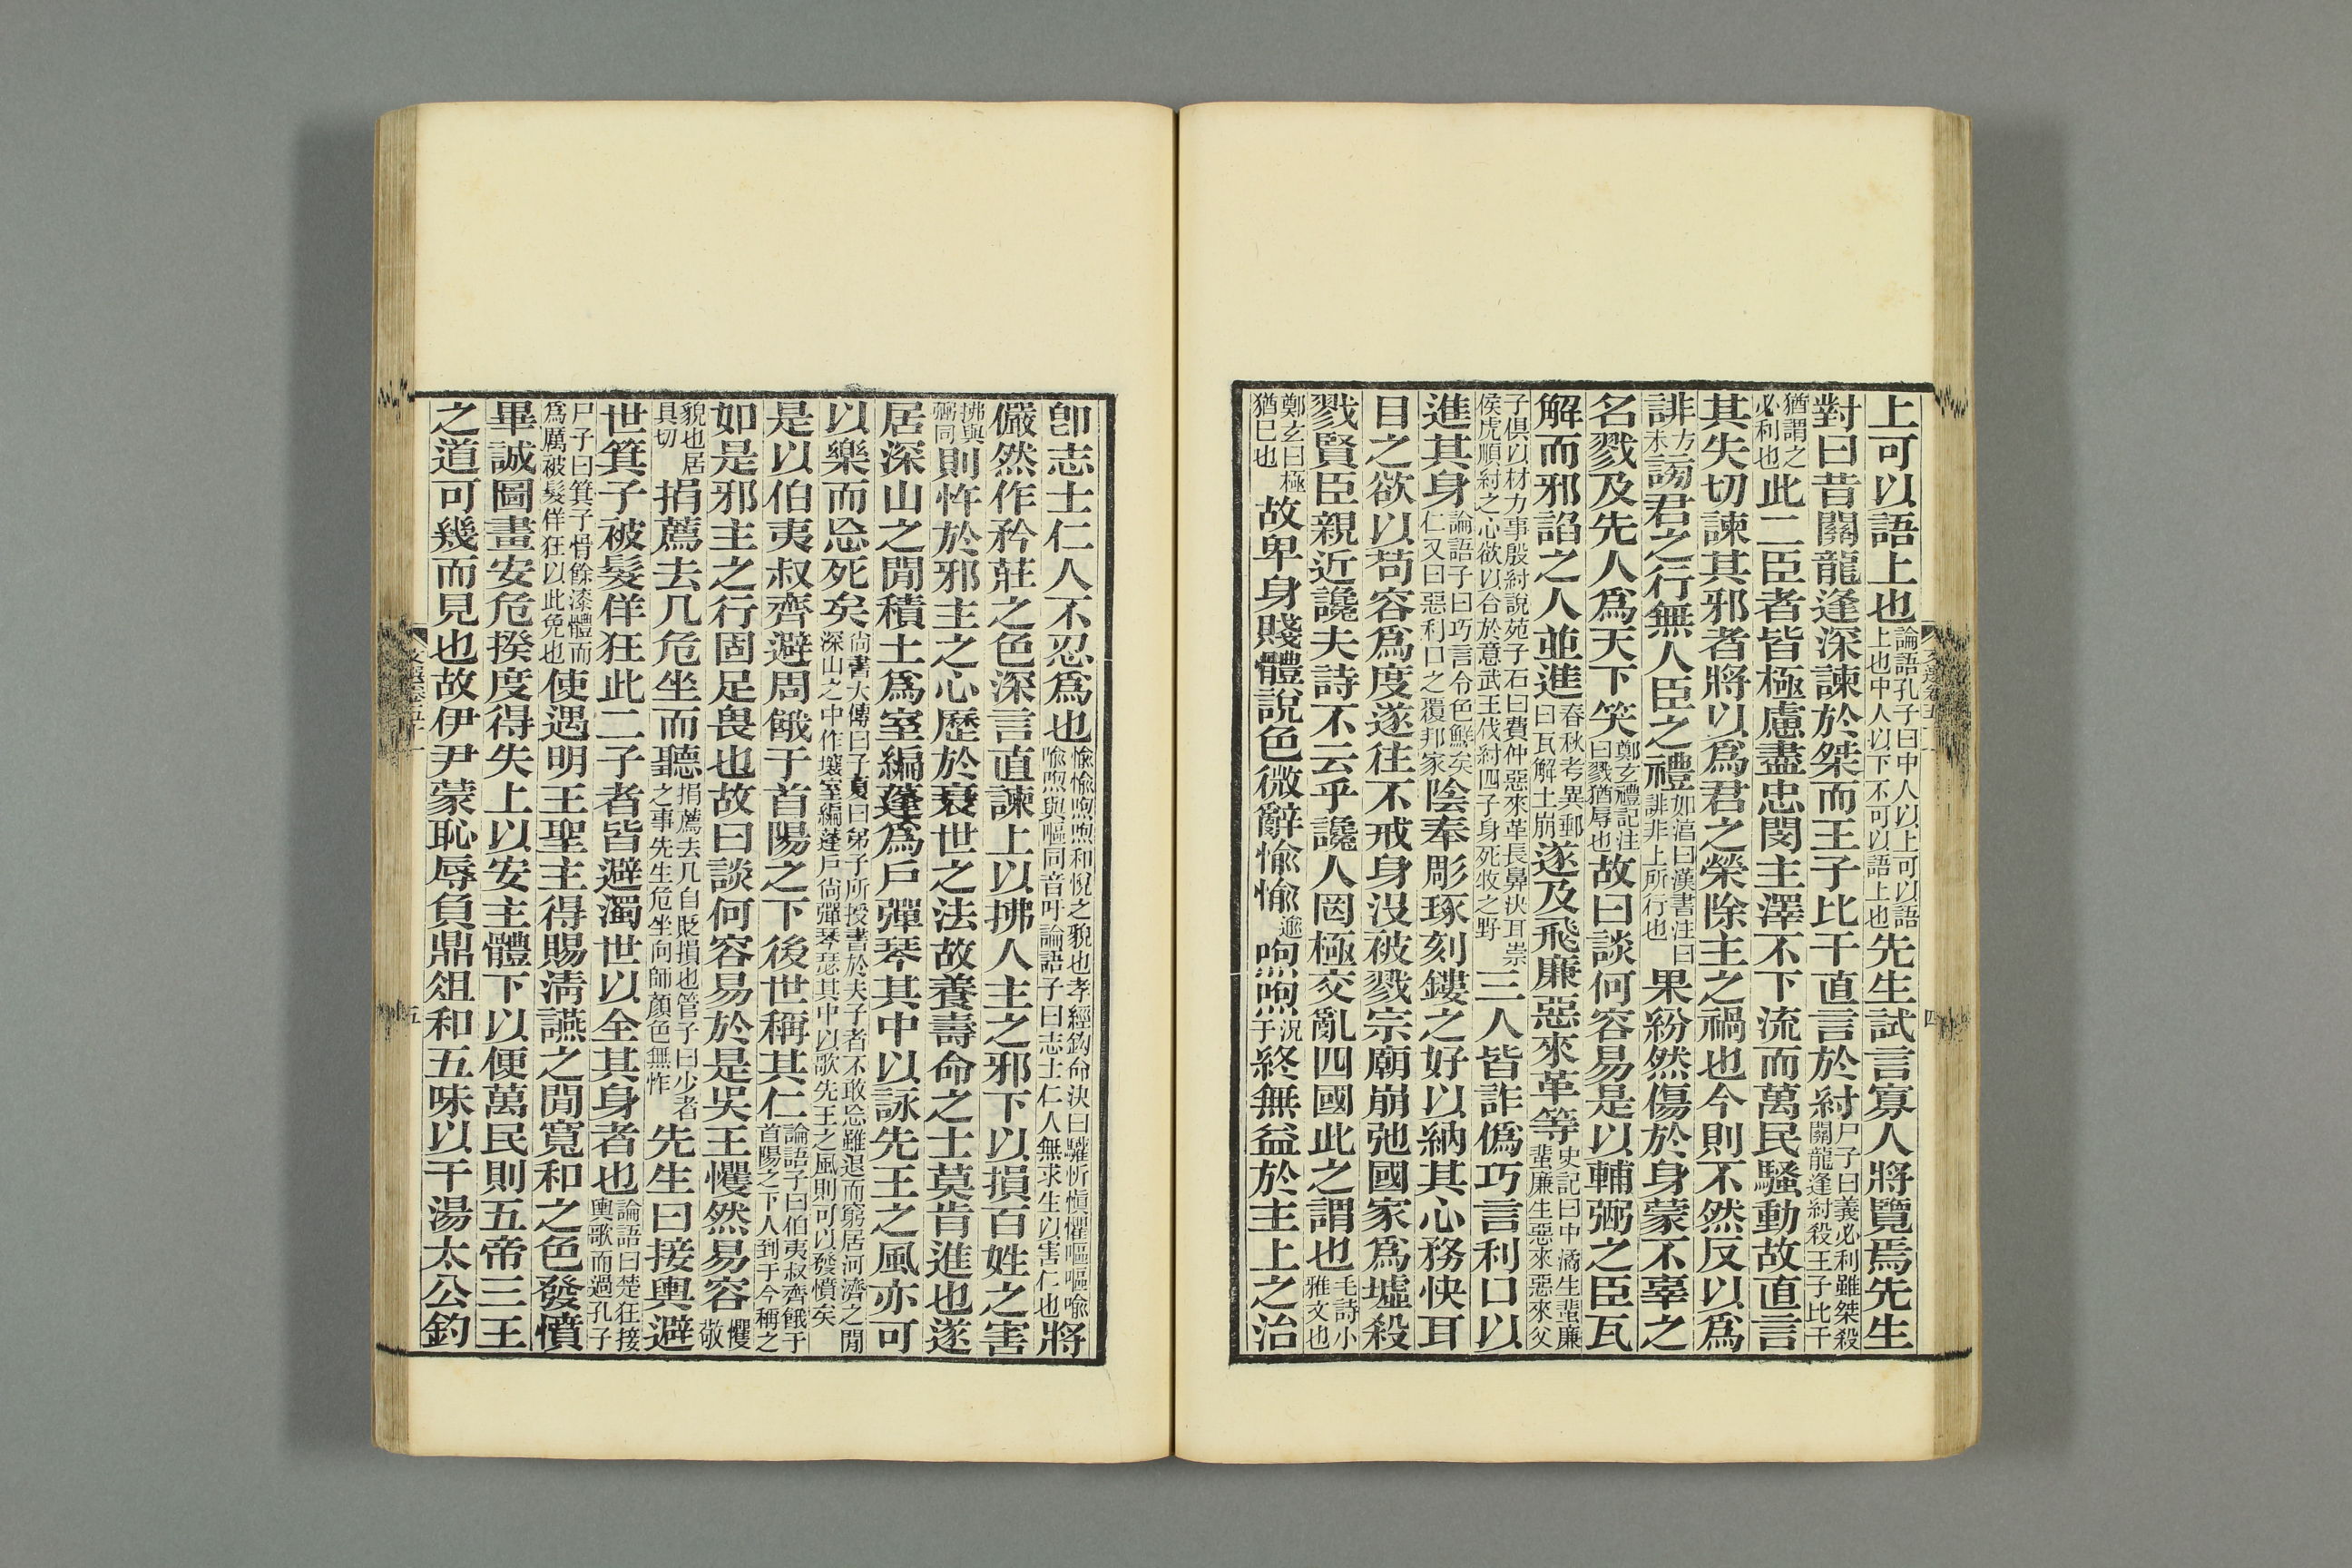 上可以語上也論語孔子曰中人以上可以語上也中人以下不可以語上也先生試言寡人將覽焉先生
對曰昔關龍逢深諫於桀而王子比干直言於紂尸子曰義必利雖桀殺關龍逢紂殺王子比干
猶謂之必利也此二臣者皆極慮盡忠閔主澤不下流而萬民騷動故直言
其失切諫其邪者將以爲君之榮除主之禍也今則不然反以爲
誹方未謗君之行無人臣之禮如湻曰漢書注曰誹非上所行也果紛然傷於身蒙不辜之
名戮及先人爲天下笑鄭玄禮記注曰戮猶辱也故曰談何容易是以輔弼之臣瓦
解而邪諂之人並進春秋考異郵曰瓦解土崩遂及飛廉惡來革等史記曰中潏生蜚廉蜚廉生惡來惡來父
子俱以材力事殷紂說苑子石曰費仲惡來革長鼻決耳崇侯虎順紂之心欲以合於意武王伐紂四子身死牧之野三人皆詐僞巧言利口以
進其身論語子曰巧言令色鮮矣仁又曰惡利口之覆邦家陰奉彫琢刻鏤之好以納其心務快耳
目之欲以苟容爲度遂往不戒身没被戮宗廟崩弛國家爲墟殺
戮賢臣親近讒夫詩不云乎讒人罔極交亂四國此之謂也毛詩小雅文也
鄭玄曰極猶已也故卑身賤體說色微辭愉愉逾呴呴况于終無益於主上之治
卽志士仁人不忍爲也愉愉呴呴和悅之貌也孝經鉤命決曰驩忻愼懼嘔嘔喻喻呴與嘔同音吁論語子曰志士仁人無求生以害仁也將
儼然作矜莊之色深言直諫上以拂人主之邪下以損百姓之害
拂與弼同則忤於邪主之心歷於衰世之法故養壽命之士莫肯進也遂
居深山之閒積土爲室編蓬爲戶彈琴其中以詠先王之風亦可
以樂而忘死矣尙書大傳曰子夏曰弟子所授書於夫子者不敢忘雖退而窮居河濟之閒深山之中作壤室編蓬戶尙彈琴瑟其中以歌先王之風則可以發憤矣
是以伯夷叔齊避周餓于首陽之下後世稱其仁論語子曰伯夷叔齊餓于首陽之下人到于今稱之
如是邪主之行固足畏也故曰談何容易於是吳王懼然易容懼敬
貌也居具切捐薦去几危坐而聽捐薦去几自貶損也管子曰少者之事先生危坐向師顏色無怍先生曰接輿避
世箕子被髮佯狂此二子者皆避濁世以全其身者也論語曰楚狂接輿歌而過孔子
尸子曰箕子胥餘漆體而爲厲被髮佯狂以此免也使遇明王聖主得賜淸讌之閒寬和之色發憤
畢誠圖畫安危揆度得失上以安主體下以便萬民則五帝三王
之道可幾而見也故伊尹蒙恥辱負鼎俎和五味以干湯太公釣
五